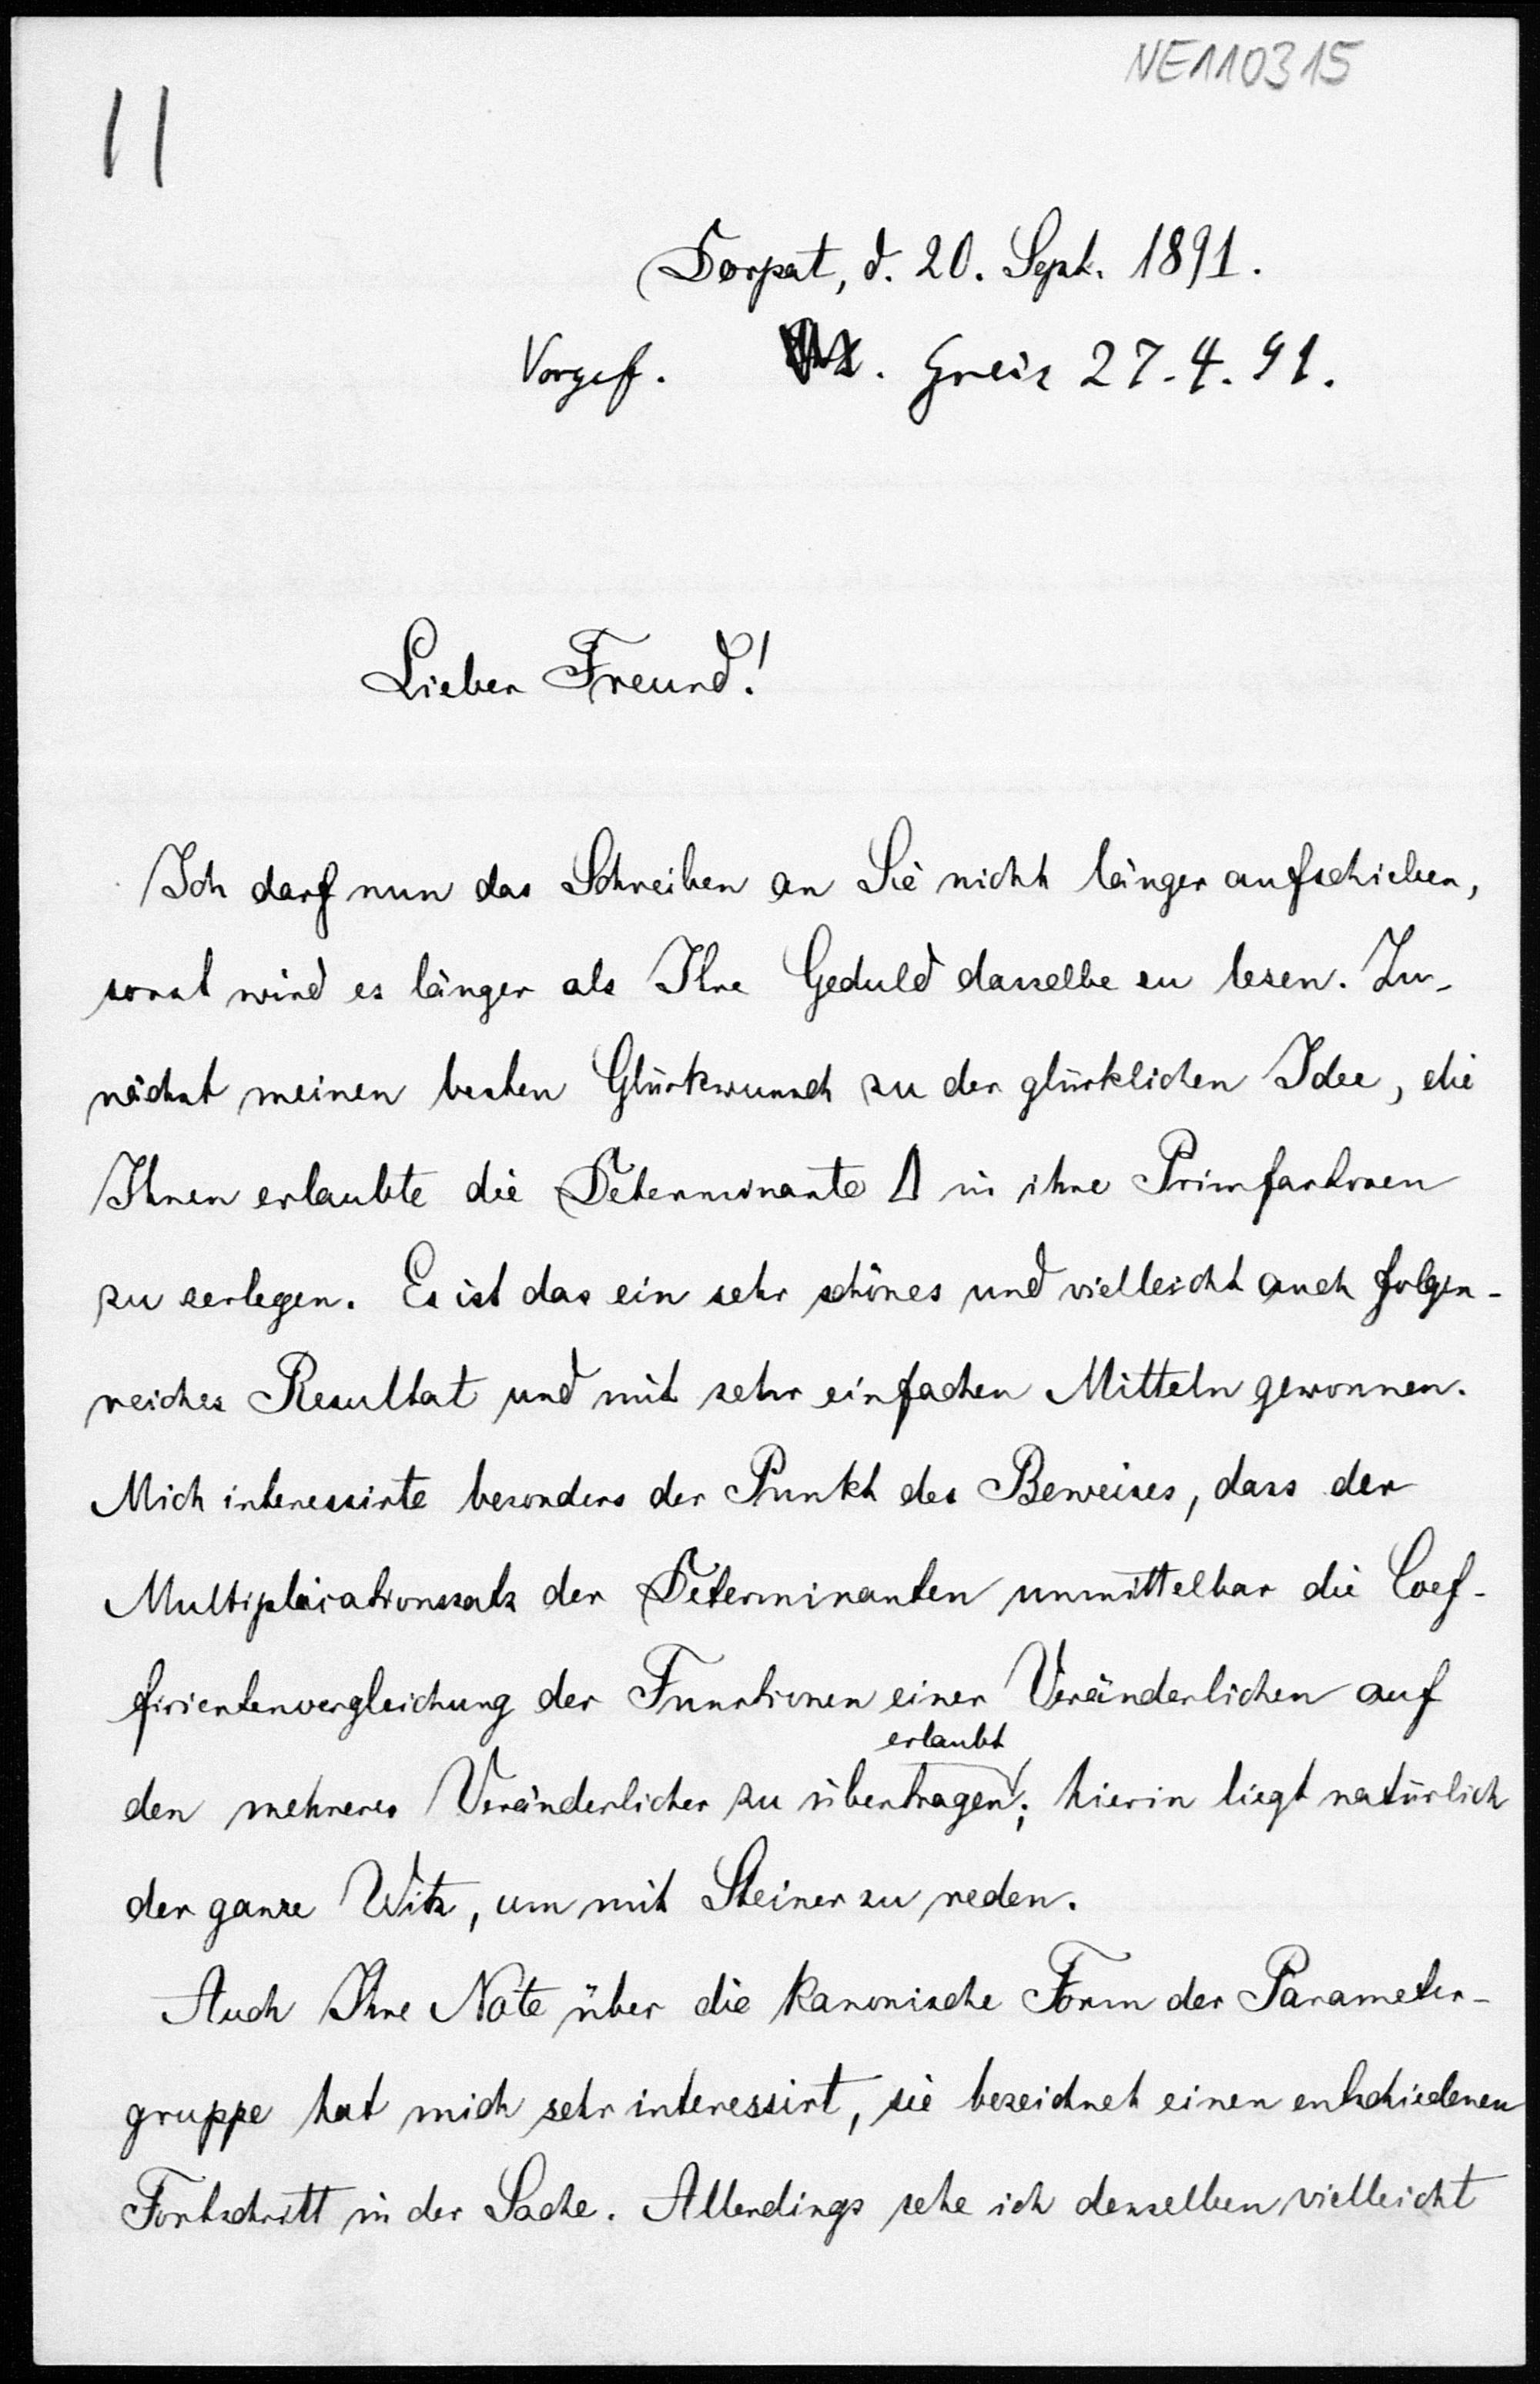 NE110315
11
Dorpat, d. 20. Sept. 1891.
Vorgef. Greiz 27.4.91.
Lieber Freund!
Ich darf nun das Schreiben an Sie nicht länger aufschieben,
sonst wird es länger als Ihre Geduld dasselbe zu lesen. Zu-
nächst meinen besten Glückwunsch zu der glücklichen Idee, die
Ihnen erlaubte die Determinante Δ in ihre Primfactoren
zu zerlegen. Es ist das ein sehr schönes und vielleicht auch folgen-
reiches Resultat und mit sehr einfachen Mitteln gewonnen.
Mich interessirte besonders der Punkt des Beweises, dass der
Multiplicationssatz der Determinanten unmittelbar die Coef-
ficientenvergleichung der Functionen einer Veränderlichen auf
erlaubt
den mehrerer Veränderlicher zu übertragen; hierin liegt natürlich
der ganze Witz, um mit Steiner zu reden.
Auch Ihre Note über die kanonische Form der Parameter-
gruppe hat mich sehr interessirt, sie bezeichnet einen entschiedenen
Fortschritt in der Sache. Allerdings sehe ich denselben vielleicht